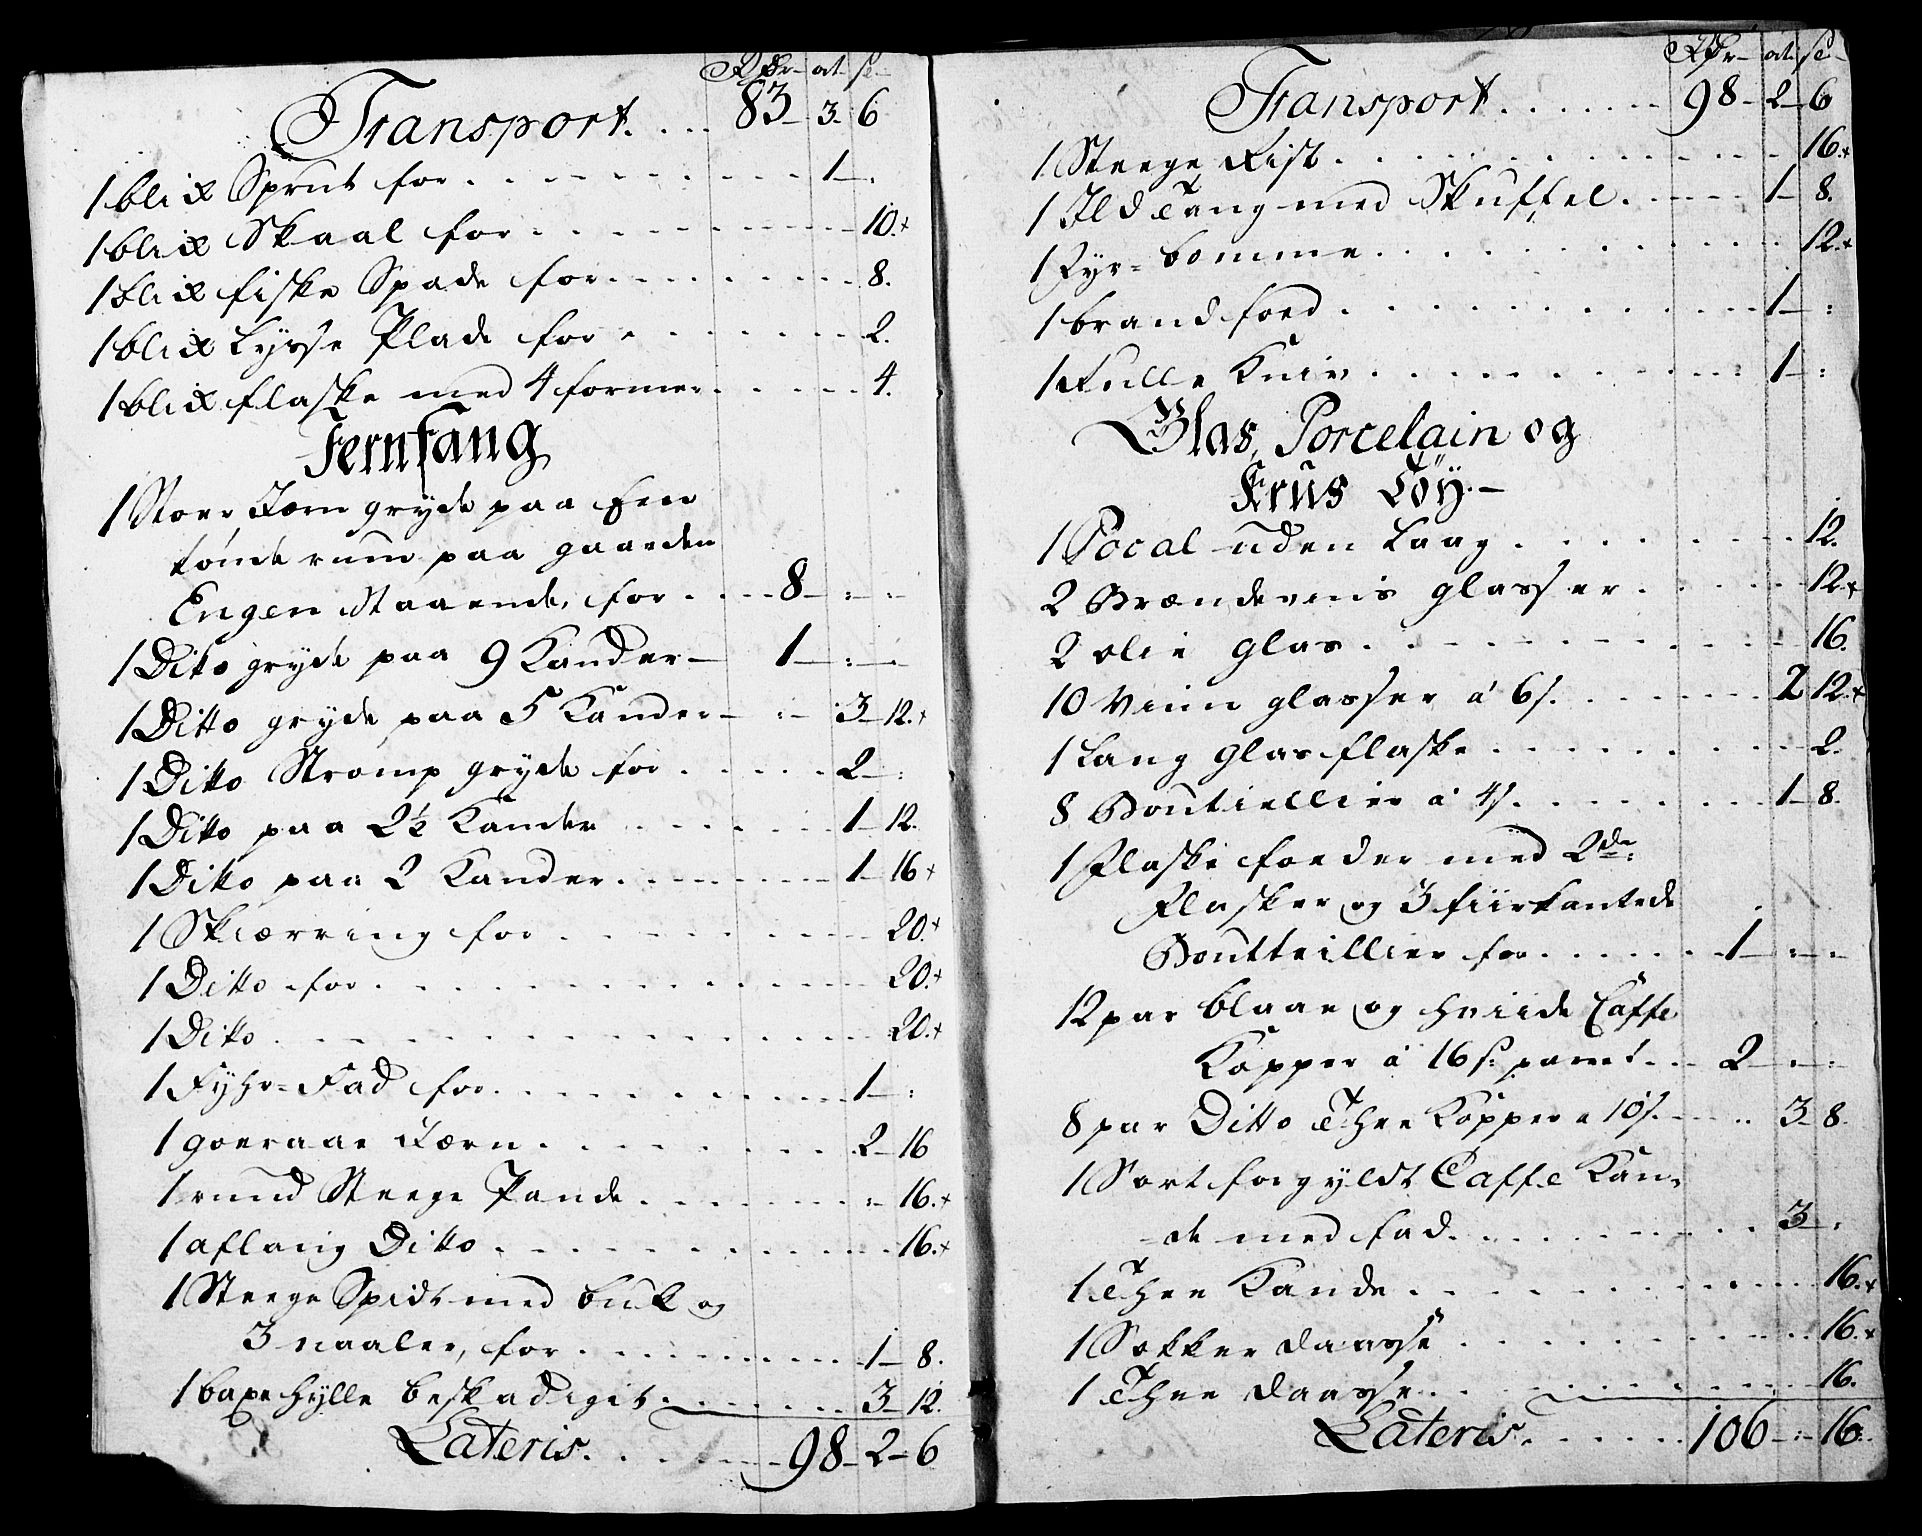 Rdr ort s
Transport. . . . 83 - 3 - 6
1 blix Sprut for . . . . 1 - :
1 blix Skaal for . . . . 10. +
1 blix fiske Spade for . . . . 8.
1 blix Lysse Plade for . . . . 2.
1 blix flaske med 4 former . . . . 4.
Jernfang
1 Stor Jærn gryde paa Een
tönde rum paa gaarden
Engen Staaende, for . . . . 8 - : -
1 Ditto gryde paa 9 Kander - 1 - : -
1 Ditto gryde paa 5 Kander - : - 3 - 12. +
1 Ditto Stromp gryde for . . . . 2 - :
1 Ditto paa 2½ Kander . . . . 1 - 12.
1 Ditto paa 2 Kander . . . . 1 - 16 +
1 Skiærring for . . . . 20. +
1 Ditto for . . . . 20. +
1 Ditto . . . . 20. +
1 Fyhr=Fad for . . . . 1 - :
1 goeraae Jærn . . . . 2 - 16
1 rund Steege Pande . . . . : 16. +
1 aflang Ditto . . . . 16. +
1 Steege Spid med buk og
3 naaler, for . . . . 1 - 8.
1 baxe hylle beskadigit . . . . 3 - 12.
Lateris . . . . 98 - 2 - 6
Rdr ort s
Transport . . . . 98 - 2 - 6
1 Steege Rist . . . . 16. +
1 Ild Tang med Skuffel . . . . 1 - 8.
1 Fyr=bomme . . . . 12. +
1 brand foed . . . . 1 - :
1 Rulle Kniv . . . . 1 - :
Glas, Porcelain og
Krus Töy. -
1 Pocal uden Laag . . . . 12.
2 Brændeviis glasser . . . . 12. +
2 olie glas . . . . 16.
10 Viin glasser á 6 s. . . . . 2 12. +
1 Lang Glas flaske . . . . 2.
8 Boutiellier á 4 s. . . . . 1 - 8.
1 Flaske foeder med 2de
Flasker og 3 fiirkantede
Boutteillier for . . . . 1 - : -
12 par blaae og hviide Caffe
Kopper á 16 s: parret . . 2 - : -
8 par Ditto Thee Kopper a 10 s. . . . 3 - 8.
1 Sort forgyldt Caffe Kan=
de med fad . . . . 3 - :
1 Thee Kande . . . . 16. +
1 Sokker daasse . . . . 16. +
1 Thee daasse . . . . 16.
Lateris . . . . 106 - : - 16.